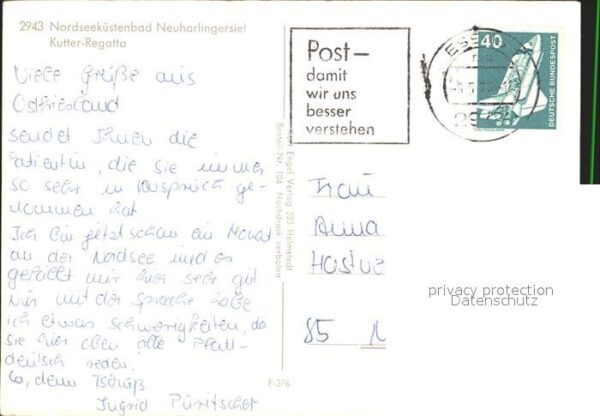 2943 Nordseeküstenbad Neuharlingersiel
Kutter-Regatta
Viele Grüße aus
Ostfriesland
sendet Ihnen die
Patientin, die sie immer
so sehr in Anspruch ge-
nommen hat
Ich bin jetzt schon ein Monat
an der Nordsee und es
gefällt mir hier sehr gut
Nur mit der Sprache habe
ich etwas Schwierigkeiten, da
sie hier eben alle Platt-
deutsch reden.
So, denn Tschüß
Ingrid
Engel Verlag 333 Helmstedt
Bestell-Nr. 104 Nachdruck verboten
E-376
Post-
damit
wir uns
besser
verstehen
ESE
40
DEUTSCHE BUNDESPOST
Frau
Anna
85 N
privacy protection
Datenschutz